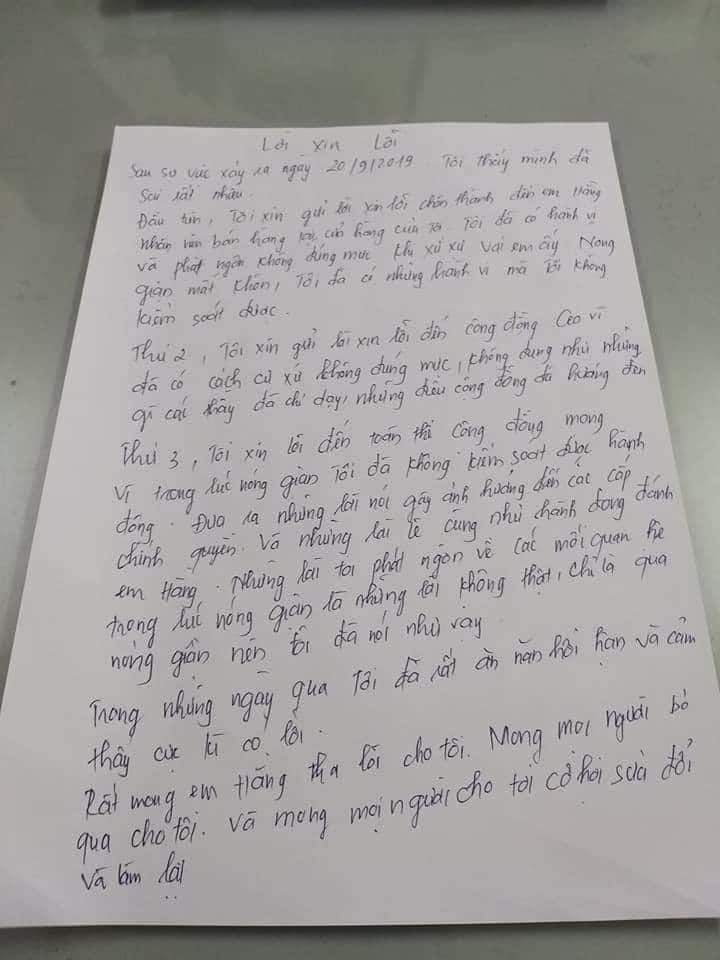 Lời xin lỗi
Sau sự việc xảy ra ngày 20/9/2019 Tôi thấy mình đã
Sai rất nhiều.
Đầu tiên, Tôi xin gửi lời xin lỗi chân thành đến em Hằng
nhân viên bán hàng tại cửa hàng của Tôi. Tôi đã có hành vi
và phát ngôn không đúng mực khi xử sự với em ấy. Nóng
giận mất khôn, Tôi đã có những hành vi mà Tôi không
kiểm soát được.
Thứ 2, Tôi xin gửi lời xin lỗi đến cộng đồng Ceo vì
đã có cách cư xử không đúng mực, không đúng như những
gì các thầy đã chỉ dạy, những điều cộng đồng đã hướng đến
Thứ 3, Tôi xin lỗi đến toàn thể cộng đồng mạng
Vì trong lúc nóng giận Tôi đã không kiểm soát được hành
động. Đưa ra những lời nói gây ảnh hưởng đến các cấp
chính quyền. Và những lời lẽ cũng như hành động đánh
em Hằng. Những lời tôi phát ngôn về các mối quan hệ
trong lúc nóng giận là những lời không thật, chỉ là quá
nóng giận nên tôi đã nói như vậy
Trong những ngày qua Tôi đã rất ăn năn hối hận và cảm
thấy cực kì có lỗi.
Rất mong em Hằng tha lỗi cho tôi. Mong mọi người bỏ
qua cho tôi. Và mong mọi người cho tôi cơ hội sửa đổi
Và làm lại